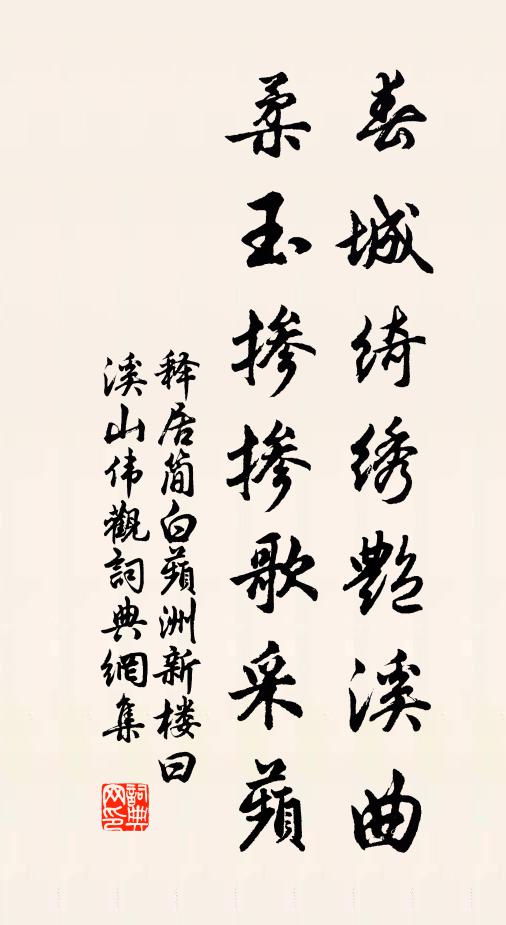 春城绮绣艳溪曲
柔玉掺掺歌采蘋
释居简白蘋洲新楼曰
溪山伟觀詞典網集
詞典网印